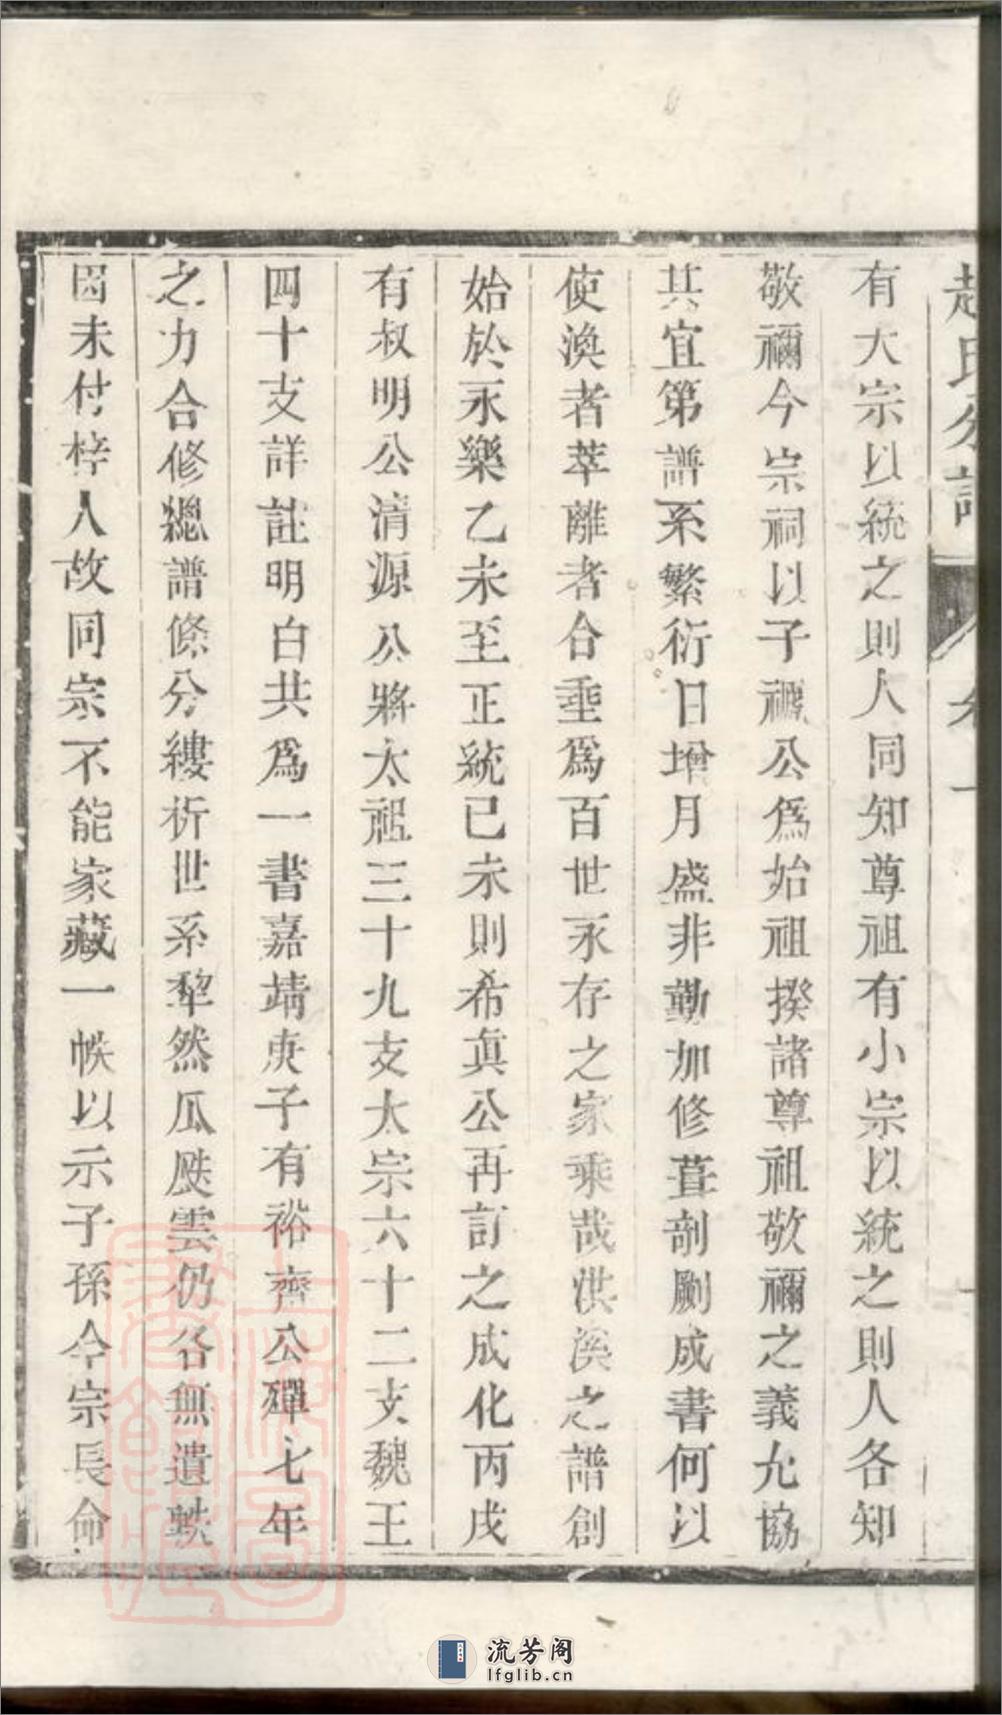 有大宗以統之則人同知尊祖有小宗以統之則人各知
敬禰今宗祠以子禠公爲始祖揆諸尊祖敬禰之義允協
其宜第譜系繁衍日增月盛非勤加修葺剞劂成書何以
使渙者萃離者合垂爲百世永存之家乘哉洪溪之譜創
始於永樂乙未至正統已未則希眞公再訂之成化丙戌
有叔明公清源公將太祖三十九支太宗六十二支魏王
四十支詳註明白共爲一書嘉靖庚子有裕齊公殫七年
之力合修總譜條分縷析世系犂然瓜瓞雲仍各無遺軼
因未付梓人故同宗不能家藏一帙以示子孫今宗長命
流芳阁
lfglib.cn